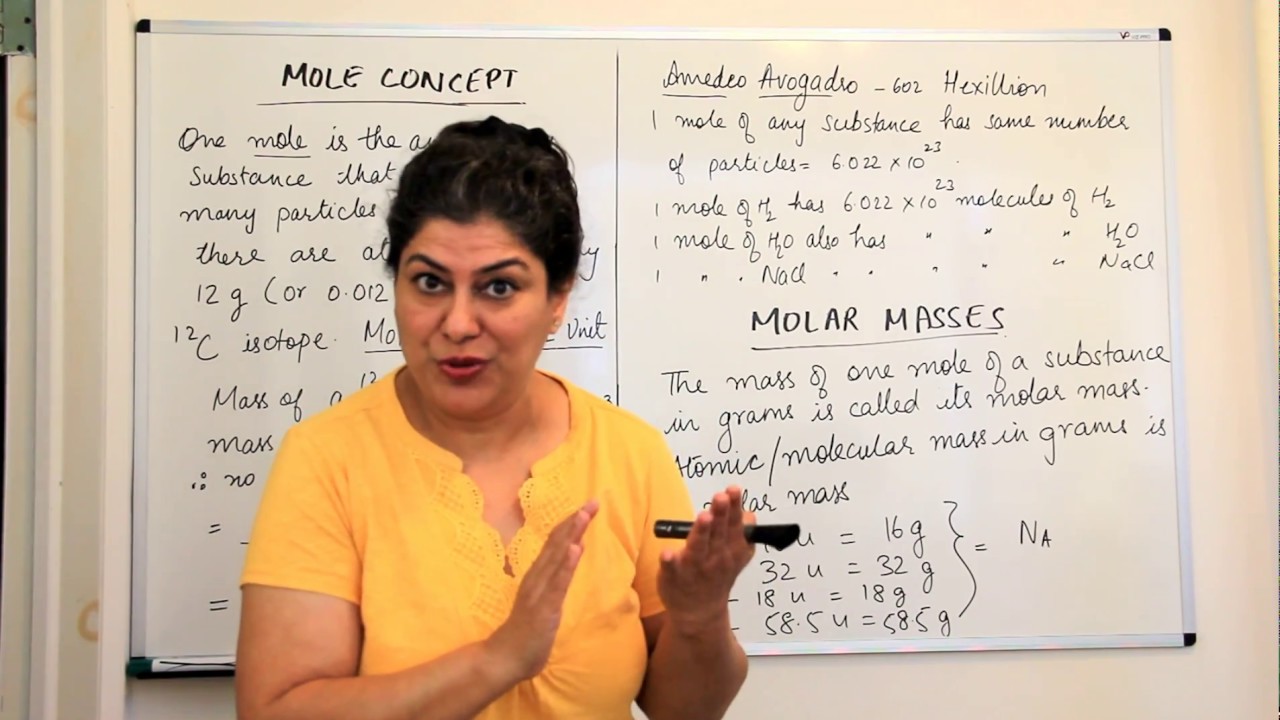 MOLE CONCEPT
One mole is the
Substance that
many particles
there are
12 g (or 0.012
12C isotope. Unit
Mass of a 12
mass
∴ no
=
=
Amedeo Avogadro - 602 Hexillion
1 mole of any substance has same number
of particles = 6.022 × 10^23.
1 mole of H2 has 6.022 × 10^23 molecules of H2
1 mole of H2O also has " " " H2O
1 " " NaCl " " " " " NaCl
MOLAR MASSES
The mass of one mole of a substance
in grams is called its molar mass.
Atomic/molecular mass in grams is
mass
u = 16 g
32 u = 32 g
- 18 u = 18 g
- 58.5 u = 58.5 g
} = NA